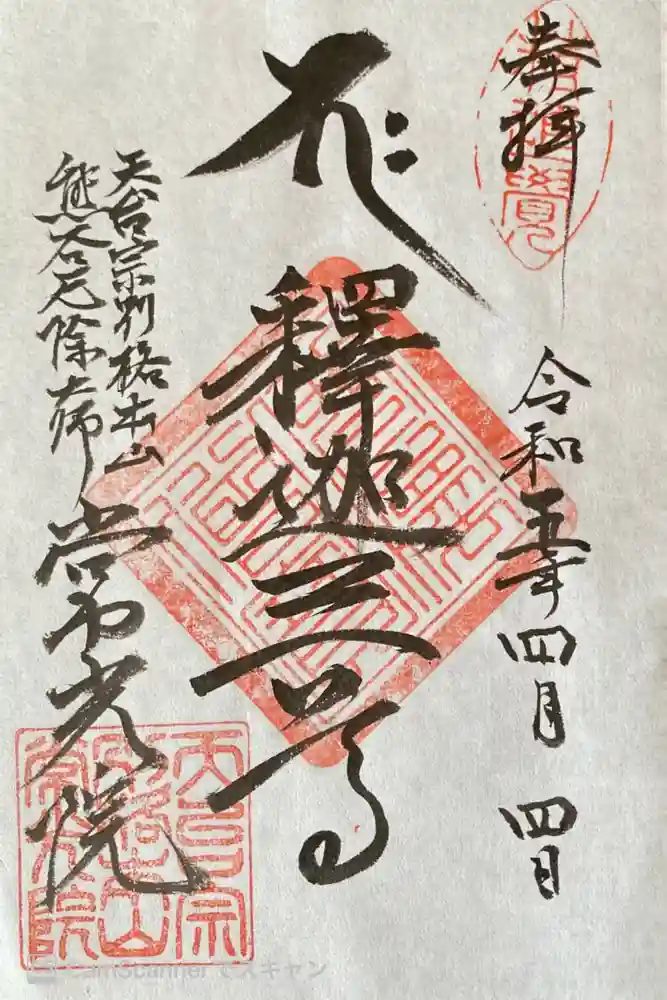 奉拝
令和五年四月四日
釋迦三尊
天台宗別格本山
熊谷厄除大師
常光院
天台宗
別格本山
常光院
CamScanner でスキャン